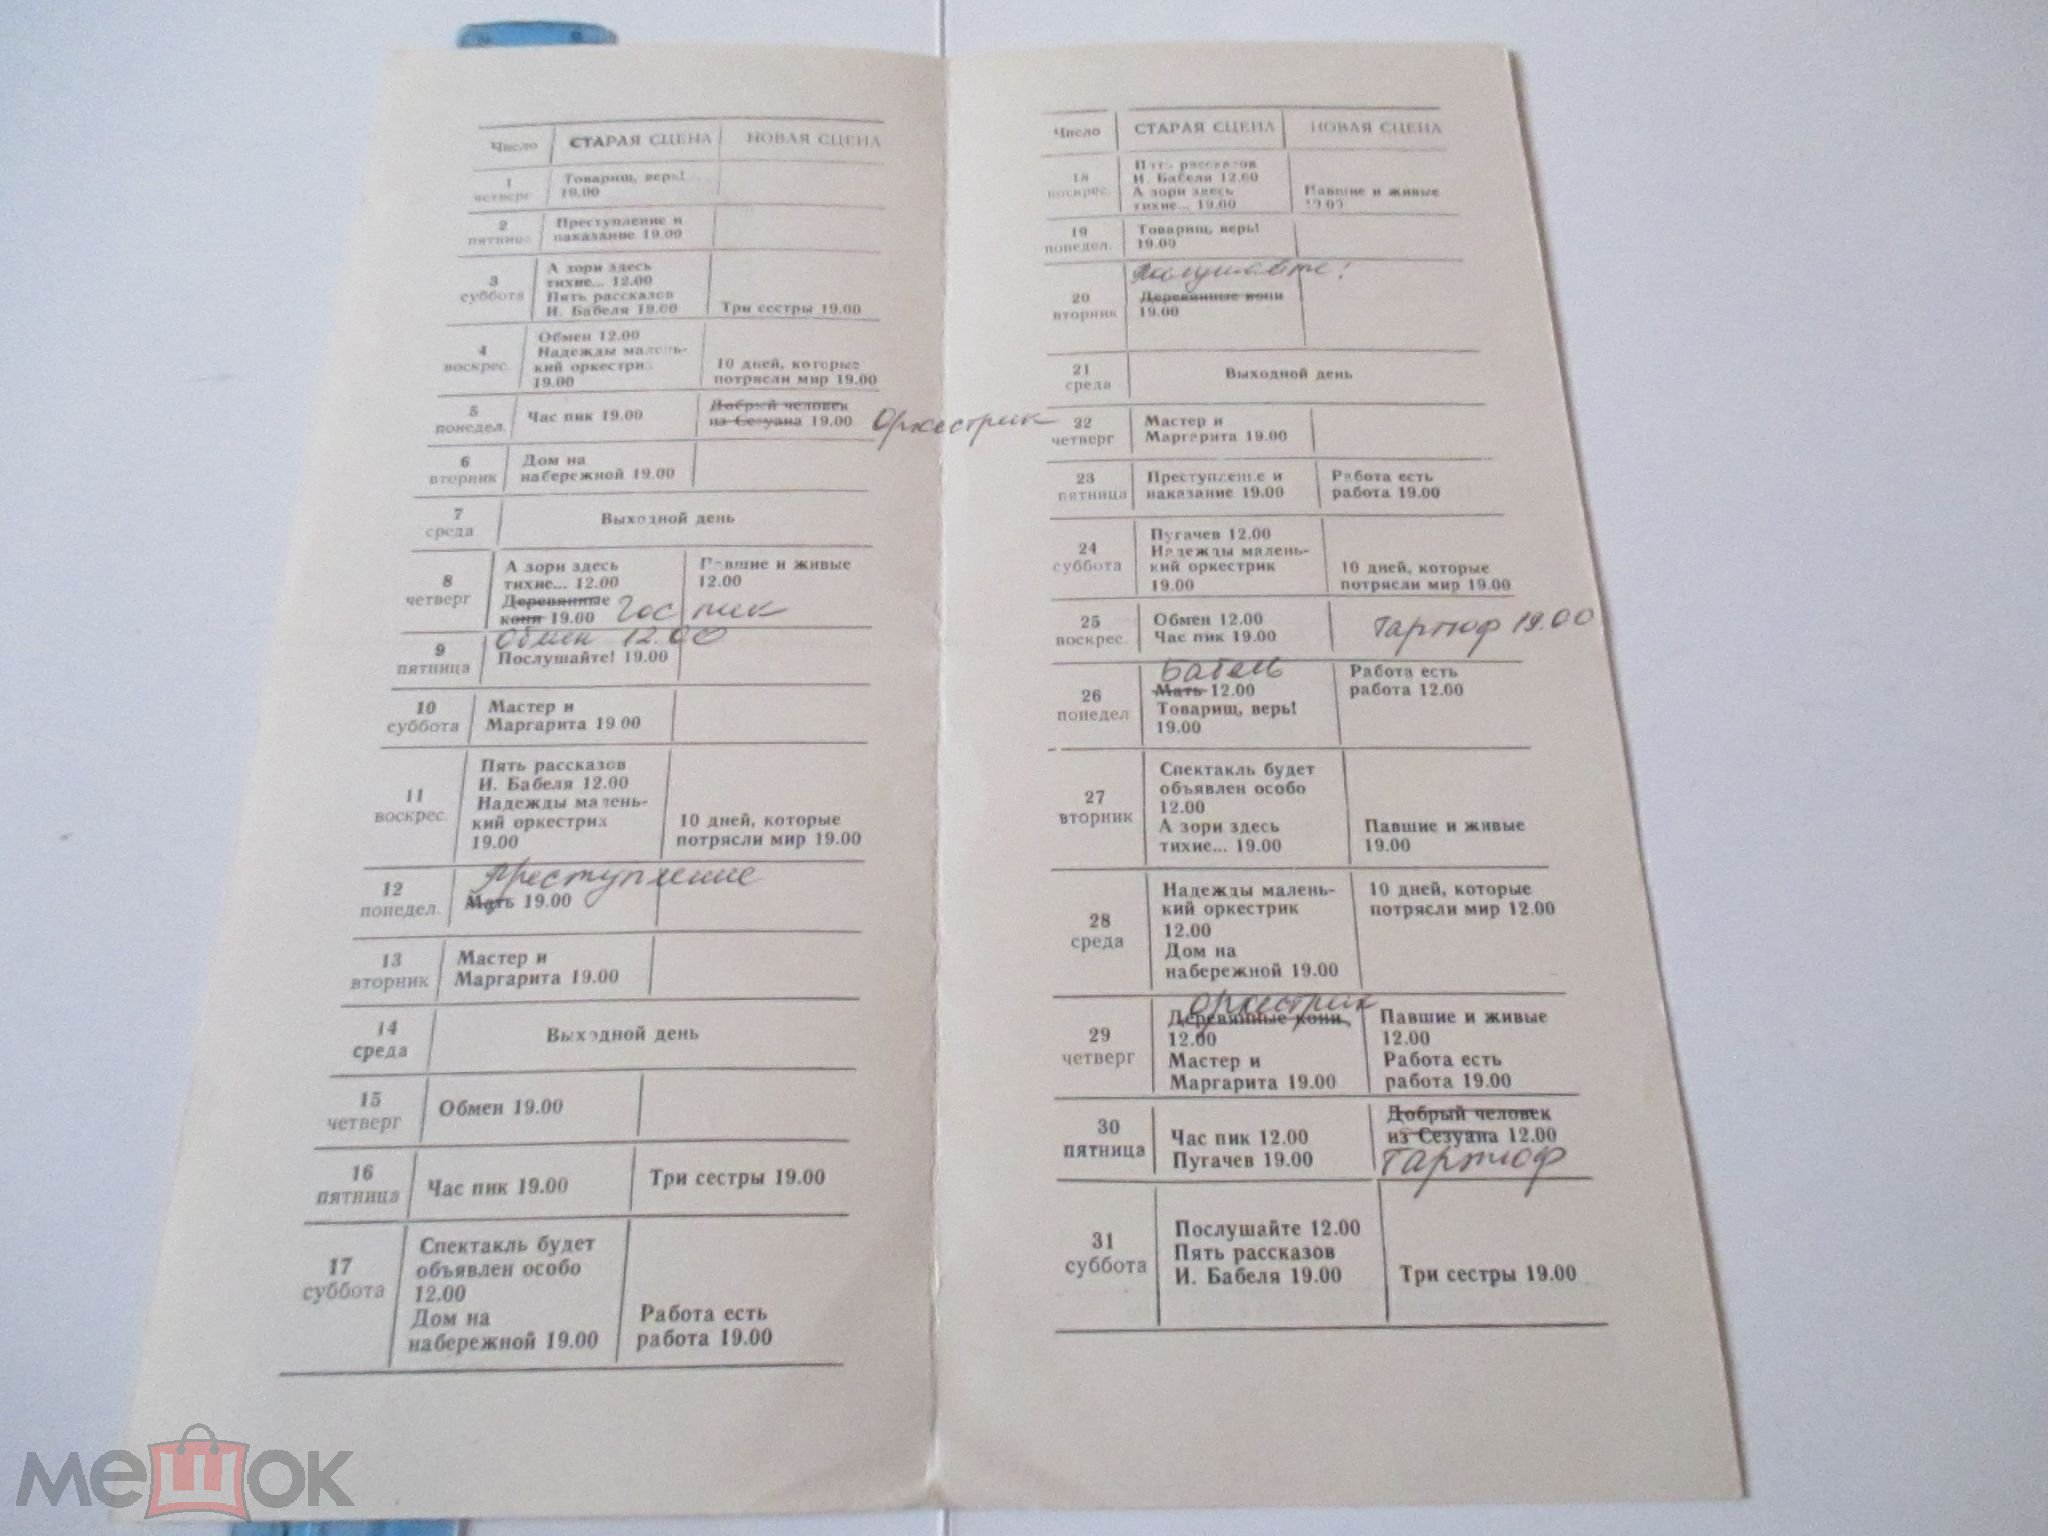 Число СТАРАЯ СЦЕНА НОВАЯ СЦЕНА
1
четверг
Товарищ, верь!
19.00
2
пятница
Преступление и
наказание 19.00
3
суббота
А зори здесь
тихие... 12.00
Пять рассказов
И. Бабеля 19.00
Три сестры 19.00
4
воскрес.
Обмен 12.00
Надежды малень-
кий оркестрик
19.00
10 дней, которые
потрясли мир 19.00
5
понедел.
Час пик 19.00
Добрый человек
из Сезуана 19.00
Оркестрик
6
вторник
Дом на
набережной 19.00
7
среда
Выходной день
8
четверг
А зори здесь
тихие... 12.00
Деревянные
кони 19.00
Час пик
Павшие и живые
12.00
9
пятница
Обмен 12.00
Послушайте! 19.00
10
суббота
Мастер и
Маргарита 19 00
11
воскрес.
Пять рассказов
И. Бабеля 12.00
Надежды малень-
кий оркестрик
19.00
10 дней, которые
потрясли мир 19.00
12
понедел.
Преступление
Мать 19.00
13
вторник
Мастер и
Маргарита 19.00
14
среда
Выходной день
15
четверг
Обмен 19.00
16
пятница
Час пик 19.00
Три сестры 19.00
17
суббота
Спектакль будет
объявлен особо
12.00
Дом на
набережной 19.00
Работа есть
работа 19.00
Число СТАРАЯ СЦЕНА НОВАЯ СЦЕНА
18
воскрес.
Пять рассказов
И. Бабеля 12.00
А зори здесь
тихие... 19.00
Павшие и живые
19.00
19
понедел.
Товарищ, верь!
19.00
20
вторник
Послушайте!
Деревянные кони
19.00
21
среда
Выходной день
22
четверг
Мастер и
Маргарита 19.00
23
пятница
Преступление и
наказание 19.00
Работа есть
работа 19.00
24
суббота
Пугачев 12.00
Надежды малень-
кий оркестрик
19.00
10 дней, которые
потрясли мир 19.00
25
воскрес.
Обмен 12.00
Час пик 19.00
Тартюф 19.00
26
понедел
Бабель
Мать 12.00
Товарищ, верь!
19.00
Работа есть
работа 12.00
27
вторник
Спектакль будет
объявлен особо
12.00
А зори здесь
тихие... 19.00
Павшие и живые
19.00
28
среда
Надежды малень-
кий оркестрик
12.00
Дом на
набережной 19.00
10 дней, которые
потрясли мир 12.00
29
четверг
Оркестрик
Деревянные кони
12.00
Мастер и
Маргарита 19.00
Павшие и живые
12.00
Работа есть
работа 19.00
30
пятница
Час пик 12.00
Пугачев 19.00
Добрый человек
из Сезуана 12.00
Тартюф
31
суббота
Послушайте 12.00
Пять рассказов
И. Бабеля 19.00
Три сестры 19.00
мешок